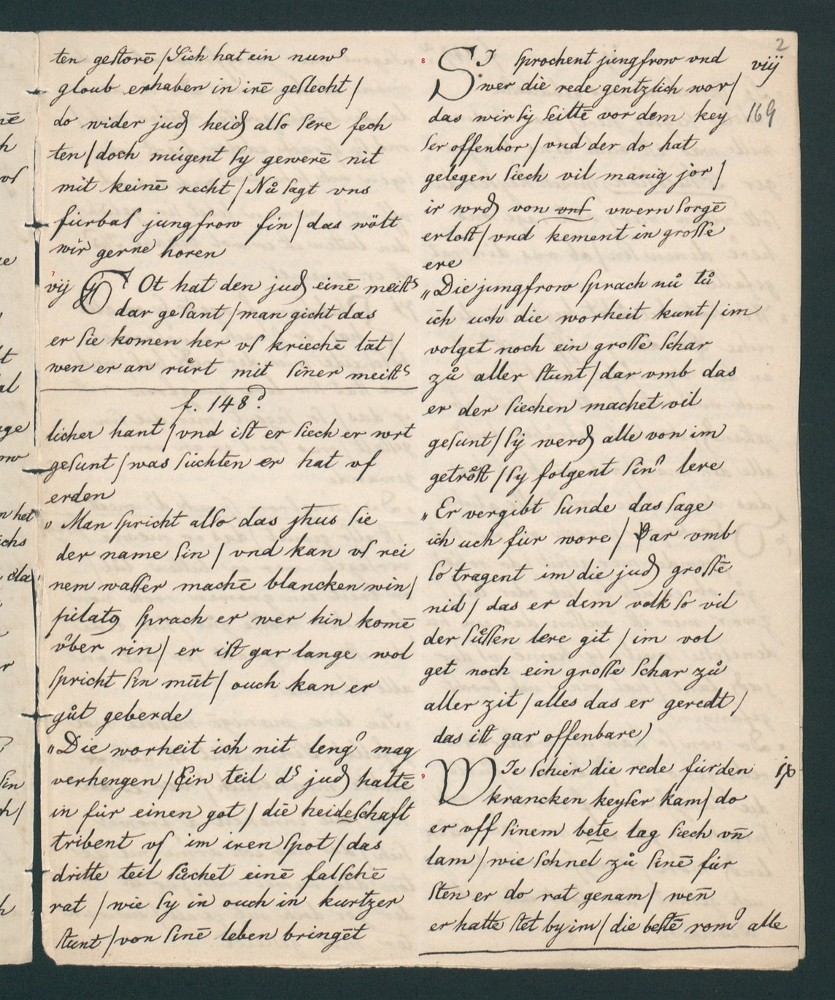 ten gestorē / Sich hat ein nuwᵉ
gloub erhaben in irē geslecht /
do wider judē heidē also sere fech
ten / doch múgent sy gewerē nit
mit keinē recht / Nů sagt vns
fúrbas jungfrow fin / das wölt
wir gerne horen
vij GOt hat den judē einē meistᵉ
dar gesant / man gicht das
er sie komen her vs kriechē lāt /
wen er an růrt mit siner meistᵉ
f. 148ᵃ
licher hant / vnd ist er siech er wrt
gesunt / was súchten er hat vf
erden
„ Man spricht also das jhus sie
der name sin / vnd kan vs rei
nem wasser machē blancken win /
pilatꝰ sprach er wer hin komē
över rin / er ist gar lange wol
spricht sin mút / ouch kan er
gůt geberde
„ Die worheit ich nit lengᵉ mag
verhengen / Ein teil dᵉ judē hattē
in fúr einen got / die heideschaft
tribent vs im iren spot / das
dritte teil sůchet einē falschē
rat / wie sy in ouch in kurtzer
stunt / von sinē leben bringēt
2
SI sprochent jungfrow vnd viij
wer die rede gentzlich wor /
das wir sÿ seitte vor dem key 169
ser offenbor / vnd der do hat
gelegen siech vil manig jor /
ir wrdē von vns vwern sorgē
erlost / vnd kement in grosse
ere
„ Die jungfrow sprach nů tů
ich uch die worheit kunt / im
volget noch ein grosse schar
zů aller stunt / dar vmb das
er der siechen machet vil
gesunt / sÿ werdē alle von im
getröst / sy folgent sinᵉ lere
„ Er vergibt sunde das sage
ich uch fúr wore / Dar vmb
so tragent im die judē grossē
nid / das er dem volk so vil
der sůssen lere git / im vol
get noch ein grosse schar zů
aller zit / alles das er geredt /
das ist gar offenbare)
WIe schier die rede fúr den ix
krancken keyser kam / do
er vff sinem bete lag siech vn̄
lam / wie schnel zů sinē fúr
sten er do rat genam / wen̄
er hatte stet by im / die bestē romᵉ alle